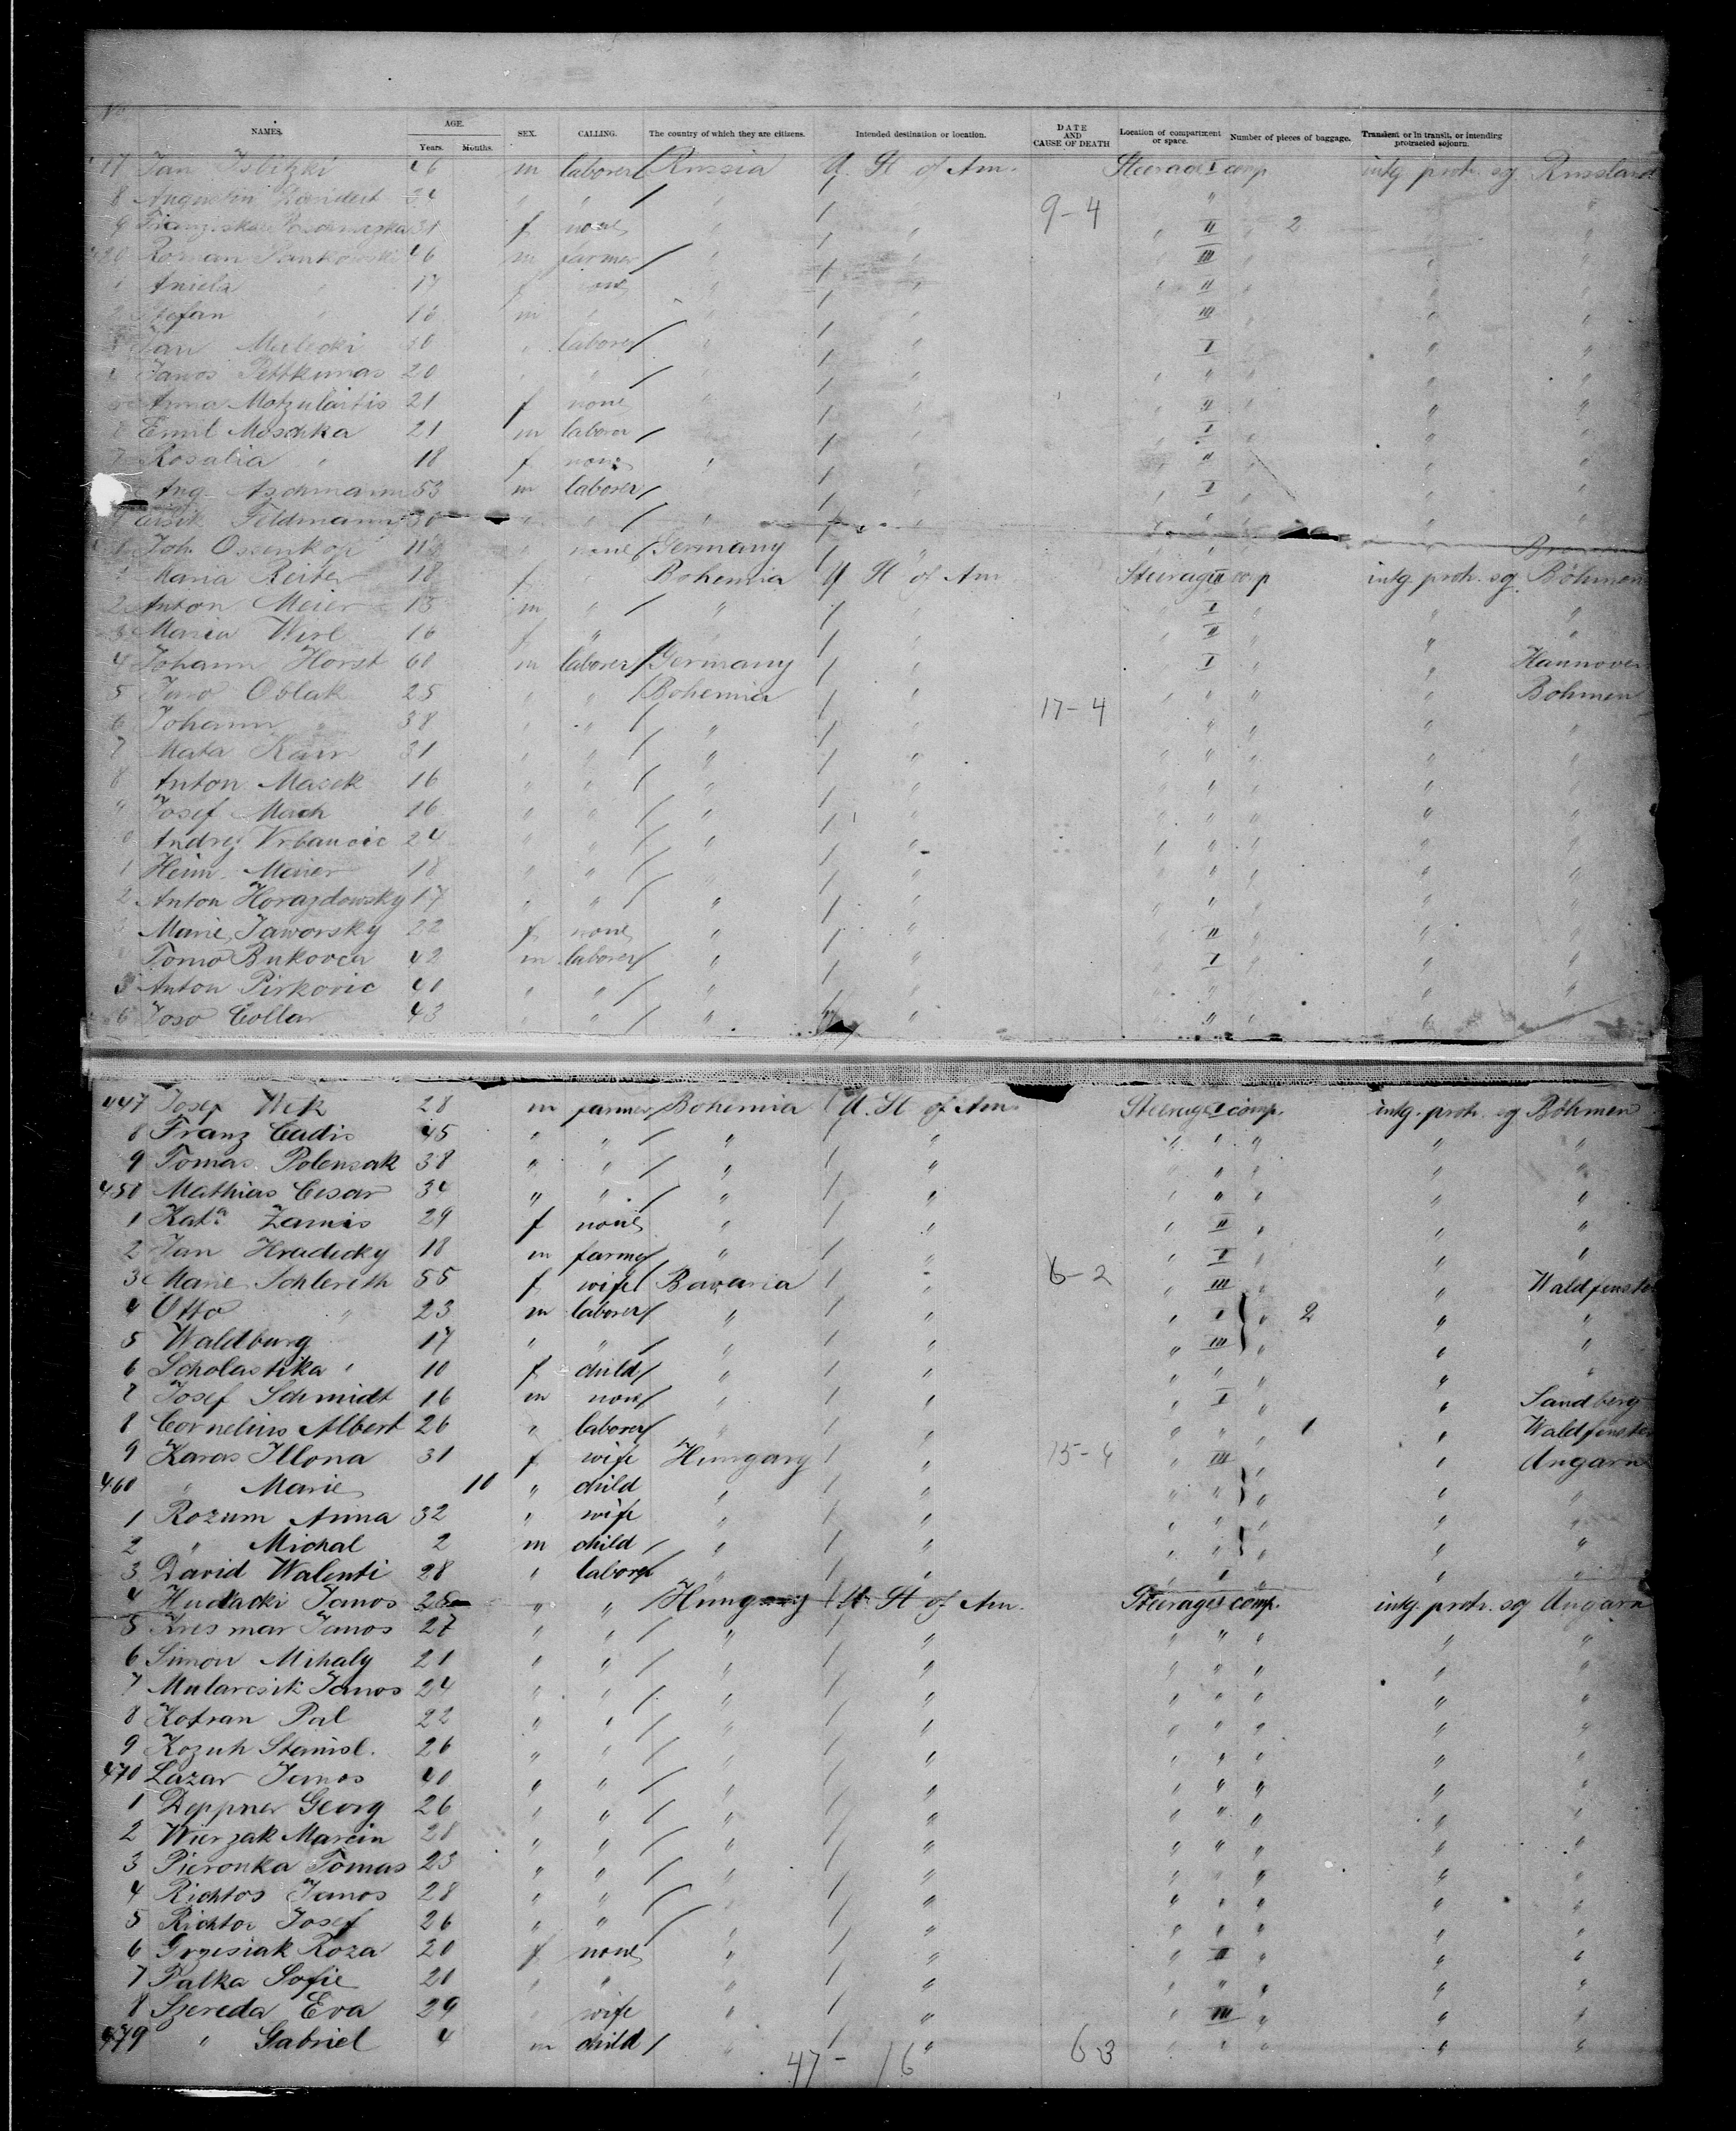 No
NAMES. AGE. Years. Months. SEX. CALLING. The country of which they are citizens. Intended destination or location. DATE AND CAUSE OF DEATH Location of compartment or space. Number of pieces of baggage. Transient or in transit, or intending protracted sojourn.
17 Jan 46 m laborer Russia U. St of Am. Steerage I comp intg. protr. sg Russland
8 Augustin 24 " " / " / " " "
9 Franziska 31 f none " / " 9-4 " II " 2 " "
Roman Pankowski 46 m farmer / " / " " III " " "
1 Aniela " 17 f none " / " " II " " "
2 Stefan " m " / " / " III " " "
3 Jan Malecki " laborer / " / " I " " "
4 Janos Pettkunas 20 " " / " / " " " " " "
5 Anna Motzulaitis 21 f none " / " " II " " "
6 Emil Moschka 21 m laborer / " / " " I " " "
7 Rosalia " 18 f none " / " II " " "
Aug. Aschmann 53 m laborer / " / " " I " " "
9 Feldmann 30 " " / " / "
Joh. Ossenkop 11 " none / Germany / "
1 Maria Reiter 18 f " Bohemia U St of Am Steerage II comp intg. protr. sg Böhmen
2 Anton Meier 15 m " / " / " " I " " "
3 Maria Wirl 16 f " " / " II " " "
4 Johann Horst 60 m laborer / Germany / " I " " Hannover
5 Oblak 25 " " / Bohemia / " " " " " Böhmen
6 Johann " 38 " " / " / " 17-4 " " " "
7 Mata Kain 31 " " / " / " " " " " "
8 Anton Masek 16 " " / " / " " " " " "
" Josef Mach 16 " " / " / " " " " " "
0 Andrej Vrbancic 24 " " / " / " " " " " "
1 Heinr. Maier 18 " " / " / " " " " " "
2 Anton Horazdowsky 17 " " / " / " " " " " "
Marie Jaworsky 22 f none " / " " II " " "
Tomo Bukovca 42 m laborer / " / " I " " "
5 Anton Pirkovic 40 " " / " / " " " " "
6 Joso Collar 43 " " / " / " " " " "
447 Josef Wek 28 m farmer / Bohemia / U. St of Am. Steerage I comp. intg. protr. sg Böhmen
8 Franz Cadis 45 " " / " / " " " " " "
9 Tomas Polensak 38 " " / " / " " " " " "
450 Mathias Cesar 34 " " / " / " " " " " "
1 Kata Zamis 29 f none " / " " II " " "
2 Jan Hradecky 18 m farmer / " / " " I " " "
3 Marie Schlereth 55 f wife / Bavaria / " 6-2 " III " "
4 Otto " 23 m laborer / " / " " I " 2 " "
5 Waldburg 17 " " / " / " " III " " "
6 Scholastika " 10 f child / " / " " " " " "
7 Josef Schmidt 16 m none / " / " " I " " Sandberg
8 Cornelius Albert 26 " laborer / " / " " " " 1 "
9 Karas Illona 31 f wife Hungary / " 15-4 " III " " Ungarn
460 " Marie 10 " child " / " " " " " "
1 Rozum Anna 32 " wife " / " " " " " "
2 " Michal 2 m child / " / " " " " " "
3 David Walenti 28 " laborer / " / " " I " " "
4 Hudacki Janos 28 " " / Hungary / U. St of Am. Steerage I comp. intg. protr. sg Ungarn
5 Kresmar Janos 27 " " / " / " " " " " "
6 Simon Mihaly 21 " " / " / " " " " " "
7 Mularcsik Janos 24 " " / " / " " " " " "
8 Kotran Pal 22 " " / " / " " " " " "
9 Kozuh Stanisl. 26 " " / " / " " " " " "
470 Lazar Janos 40 " " / " / " " " " " "
1 Deppner Georg 26 " " / " / " " " " " "
2 Wierzak Marcin 28 " " / " / " " " " " "
3 Pieronka Tomas 23 " " / " / " " " " " "
4 Richtos Janos 28 " " / " / " " " " " "
5 Richtor Josef 26 " " / " / " " " " " "
6 Grzesiak Roza 20 f none " / " " II " " "
7 Palka Sofie 20 " " " / " " " " " "
8 Szereda Eva 29 " wife " / " " III " " "
479 " Gabriel 4 m child / " / " 63 " " " " "
47 - 16